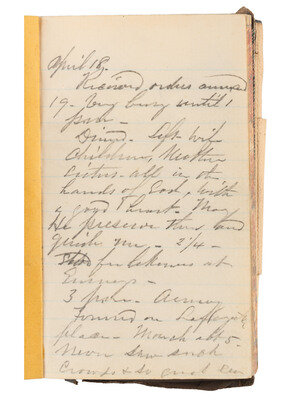 April 18.
Received orders
19. Very busy until 1
P.M.
Dined. Left wife
Children, Mother
Sisters all in the
hands of God, with
a good heart. May
He preserve them and
guide me - 2 1/4 -
for
3 P.M. - Army
Formed on Lafayette
place - March at 5 -
Never saw such
Crowds & so great